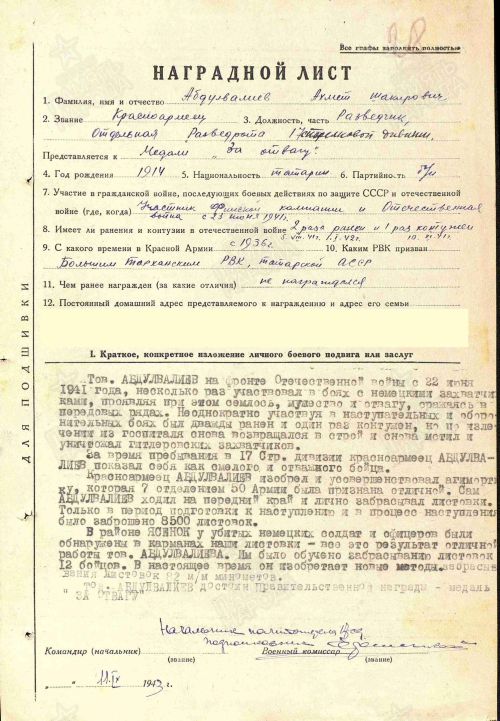 Все графы заполнить полностью
НАГРАДНОЙ ЛИСТ
1. Фамилия, имя и отчество Абдулвалиев Ахмет Шакирович
2. Звание Красноармеец 3. Должность, часть Разведчик,
Отдельная Разведрота 17 стрелковой дивизии.
Представляется к Медали „За отвагу“.
4. Год рождения 1914 5. Национальность татарин 6. Партийность б/п
7. Участие в гражданской войне, последующих боевых действиях по защите СССР и отечественной
войне (где, когда) Участник Финской кампании и Отечественная
война с 23 июня 1941г.
8. Имеет ли ранения и контузии в отечественной войне 2 раза ранен и 1 раз контужен
9. С какого времени в Красной Армии с 1936г. 10. Каким РВК призван
Больше Тарханским РВК, татарской АССР
11. Чем ранее награжден (за какие отличия) не награждался
12. Постоянный домашний адрес представляемого к награждению и адрес его семьи
ДЛЯ ПОДШИВКИ
I. Краткое, конкретное изложение личного боевого подвига или заслуг
Тов. АБДУЛВАЛИЕВ на фронте Отечественной войны с 22 июня
1941 года, несколько раз участвовал в боях с немецкими захватчи
ками, проявляя при этом смелось, мужество и отвагу, сражаясь в
передовых рядах. Неоднократно участвуя в наступательных и оборо
нительных боях был дважды ранен и один раз контужен, но по изле
чении из госпиталя снова возвращался в строй и снова мстил и
уничтожал гитлеровских захватчиков.
За время пребывания в 17 Стр. дивизии красноармеец АБДУЛВА-
ЛИЕВ показал себя как смелого и отважного бойца.
Красноармеец АБДУЛВАЛИЕВ изобрел и усовершенствовал агимортир
ку, которая 7 отделением 50 Армии была признана отличной. Сам
АБДУЛВАЛИЕВ ходил на передний край и лично забрасывал листовки.
Только в период подготовки к наступлению и в процессе наступления
было заброшено 8500 листовок.
В районе ЯСЕНОК у убитых немецких солдат и офицеров были
обнаружены в карманах наши листовки - все это результат отличной
работы тов. АБДУЛВАЛИЕВА. Им было обучено забрасыванию листовок
12 бойцов. В настоящее время он изобретает новые методы забрасы
вания листовок 82 м/м минометов.
Тов. АБДУЛВАЛИЕВ достоин Правительственной награды - медаль
"ЗА ОТВАГУ"
Начальник политотдела 17 сд
подполковник
Командир (начальник) Военный комиссар
(звание) (звание)
„ “ 11.IX 1943 г.